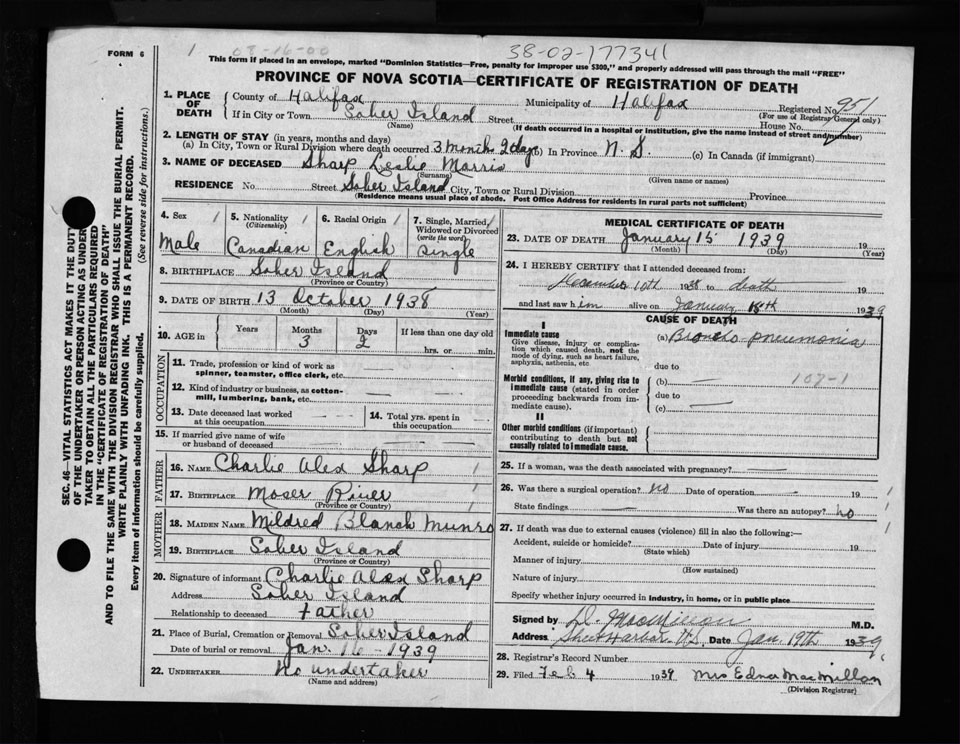 FORM 6
1 08-16-00
38-02-177341
This form if placed in an envelope, marked "Dominion Statistics—Free, penalty for improper use $300," and properly addressed will pass through the mail "FREE"
PROVINCE OF NOVA SCOTIA—CERTIFICATE OF REGISTRATION OF DEATH
SEC. 46—VITAL STATISTICS ACT MAKES IT THE DUTY
OF THE UNDERTAKER OR PERSON ACTING AS UNDER-
TAKER TO OBTAIN ALL THE PARTICULARS REQUIRED
IN THE "CERTIFICATE OF REGISTRATION OF DEATH"
AND TO FILE THE SAME WITH THE DIVISION REGISTRAR WHO SHALL ISSUE THE BURIAL PERMIT.
WRITE PLAINLY WITH UNFADING INK. THIS IS A PERMANENT RECORD.
Every item of information should be carefully supplied. (See reverse side for instructions.)
1. PLACE OF DEATH County of Halifax Municipality of Halifax Registered No. 951
(For use of Registrar General only)
If in City or Town Sober Island Street House No.
(Name) (If death occurred in a hospital or institution, give the name instead of street and number)
2. LENGTH OF STAY (in years, months and days)
(a) In City, Town or Rural Division where death occurred 3 month 2 days (b) In Province N. S. (c) In Canada (if immigrant)
3. NAME OF DECEASED Sharp Leslie Morris
(Surname) (Given name or names)
RESIDENCE No. Street Sober Island City, Town or Rural Division Province
(Residence means usual place of abode. Post Office Address for residents in rural parts not sufficient)
4. Sex 1 5. Nationality (Citizenship) 1 6. Racial Origin 1 7. Single, Married, Widowed or Divorced (write the word) 1
Male Canadian English Single
8. BIRTHPLACE Sober Island
(Province or Country)
9. DATE OF BIRTH 13 October 1938
(Month) (Day) (Year)
10. AGE in Years Months Days If less than one day old
3 2 hrs. or min.
OCCUPATION
11. Trade, profession or kind of work as
spinner, teamster, office clerk, etc.
12. Kind of industry or business, as cotton-
mill, lumbering, bank, etc.
13. Date deceased last worked
at this occupation
14. Total yrs. spent in
this occupation
15. If married give name of wife
or husband of deceased
FATHER
16. NAME Charlie Alex Sharp 1
17. BIRTHPLACE Moser River 1
(Province or Country)
MOTHER
18. MAIDEN NAME Mildred Blanch Munro
19. BIRTHPLACE Sober Island
(Province or Country)
20. Signature of informant Charlie Alex Sharp
Address Sober Island
Relationship to deceased Father
21. Place of Burial, Cremation or Removal Sober Island
Date of burial or removal Jan. 16 - 1939
22. UNDERTAKER No undertaker
(Name and address)
MEDICAL CERTIFICATE OF DEATH
23. DATE OF DEATH January 15 1939 19
(Month) (Day) (Year)
24. I HEREBY CERTIFY that I attended deceased from:
December 10th 1938 to death 19
and last saw him alive on January 15th 1939
CAUSE OF DEATH
I
Immediate cause
Give disease, injury or complica-
tion which caused death, not the
mode of dying, such as heart failure,
asphyxia, asthenia, etc
(a) Broncho pneumonia
due to
Morbid conditions, if any, giving rise to
immediate cause (stated in order
proceeding backwards from im-
mediate cause).
(b) — 107-1
due to
(c) —
II
Other morbid conditions (if important)
contributing to death but not
causally related to immediate cause.
25. If a woman, was the death associated with pregnancy?
26. Was there a surgical operation? no Date of operation 19 1
State findings Was there an autopsy? no 1
27. If death was due to external causes (violence) fill in also the following:— 1
Accident, suicide or homicide? Date of injury 19
(State which)
Manner of injury
(How sustained)
Nature of injury
Specify whether injury occurred in industry, in home, or in public place
Signed by D. MacMillan M.D.
Address Sheet Harbor N.S. Date Jan. 19th 1939
28. Registrar's Record Number
29. Filed Feb 4 1939 Mrs Edna MacMillan
(Division Registrar)